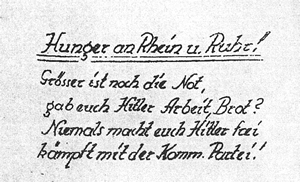 Hunger an Rhein u. Ruhr!
Grösser ist noch die Not,
gab euch Hitler Arbeit, Brot?
Niemals macht euch Hitler frei
kämpft mit der Komm. Partei!